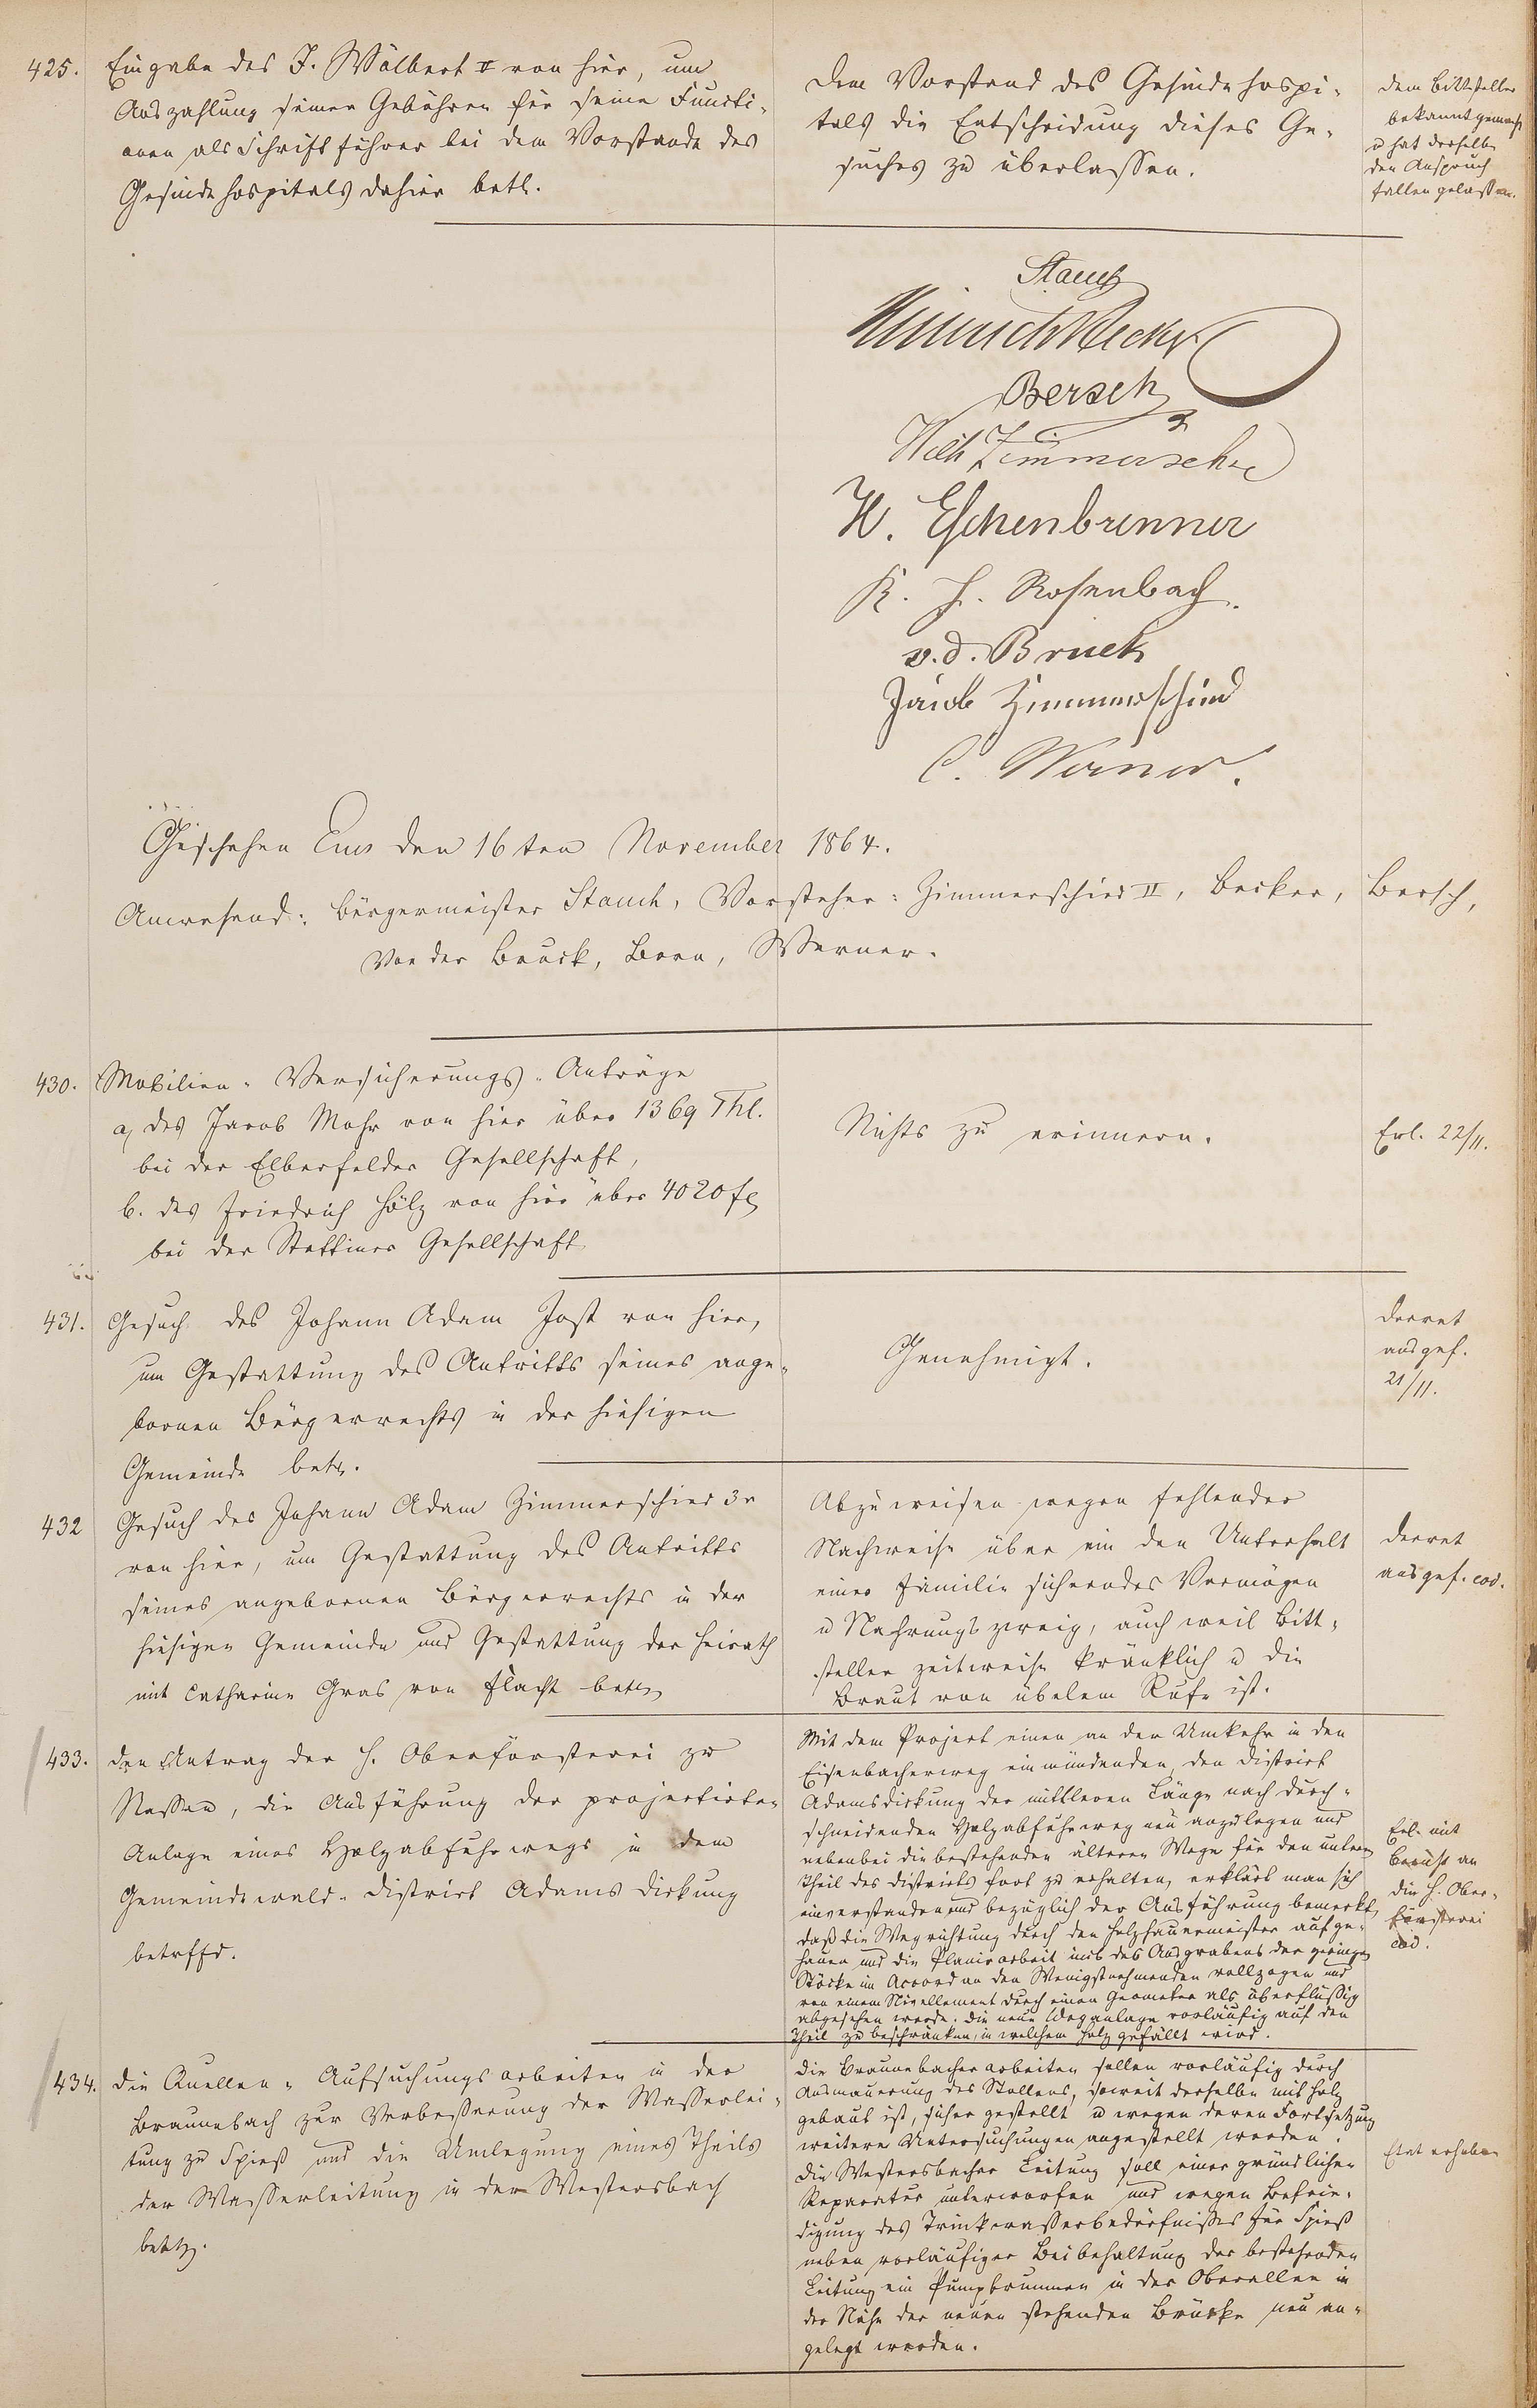 425. Eingabe des J. Wälbert II von hier, um
Auszahlung seiner Gebühren für seine Functi-
onen als Schriftführer bei dem Vorstande des
Gesindehospitals dahier betr.
Dem Vorstand des Gesindehospi-
tals die Entscheidung dieses Ge-
suches zu überlassen.
dem Bittsteller
bekannt gemacht
u hat derselbe
den Anspruch
fallen gelassen.
Stauch
Heinrich Becker
Bersch
Wilh Zimmerschied
W. Eschenbrenner
K. H. Rosenbach.
v. d. Bruck
Jacob Zimmerschied
C. Werner.
Geschehen Ems den 16ten November 1864.
Anwesend: Bürgermeister Stauch, Vorsteher: Zimmerschied II, Becker, Bersch,
Von der Bruck, Born, Werner.
430. Mobilien-Versicherungs-Anträge
a, des Jacob Mohr von hier über 1369 Thl.
bei der Elberfelder Gesellschaft,
b. des Friedrich Hölz von hier über 4020 fl
bei der Stettiner Gesellschaft
Nichts zu erinnern.
Erl. 22/11.
431. Gesuch des Johann Adam Jost von hier,
um Gestattung des Antritts seines ange-
bornen Bürgerrechts in der hiesigen
Gemeinde betr.
Genehmigt.
Decret
ausgef.
21/11.
432 Gesuch des Johann Adam Zimmerschied 3r
von hier, um Gestattung des Antritts
seines angebornen Bürgerrechts in der
hiesigen Gemeinde und Gestattung der Heirath
mit Catharine Gras von Flacht betr
Abzuweisen wegen fehlender
Nachweise über ein den Unterhalt
einer Familie sicherndes Vermögen
u Nahrungszweig, auch weil Bitt-
steller zeitweise kränklich u die
Braut von übelem Rufe ist.
Decret
ausgef. eod.
433. Den Antrag der H. Oberförsterei zu
Nassau, die Ausführung der projectirten
Anlage eines Holzabfuhrwegs in dem
Gemeindewald-District Adams Dickung
betrffd.
Mit dem Project einen an der Umkehr in den
Eisenbacherweg einmündenden, den District
Adamsdickung der mittleren Länge nach durch-
schneidenden Holzabfuhrweg neu anzulegen und
nebenbei die bestehenden älteren Wege für den untern
Theil des Districts fort zu erhalten, erklärt man sich
einverstanden und bezüglich der Ausführung bemerkt,
daß die Wegrichtung durch den Holzhauermeister aufge-
hauen und die Planirarbeit incl des Ausgrabens der geringen
Stöcke im Accord an den Wenigstnehmenden vollzogen und
von einem Nivellement durch einen Geometer als überflüssig
abgesehen werde. Die neue Weganlage vorläufig auf den
Theil zu beschränken, in welchem Holz gefällt wird.
Erl. mit
Bericht an
die H. Ober-
försterei
eod.
434. Die Quellen-Aufsuchungsarbeiten in der
Braunebach zur Verbesserung der Wasserlei-
tung zu Spieß und die Umlegung eines Theils
der Wasserleitung in der Westersbach
betr.
Die Braunebacher arbeiten sollen vorläufig durch
Ausmauerung des Stollens, soweit derselbe mit Holz
gebaut ist, sicher gestellt u wegen deren Fortsetzung
weitere Untersuchungen angestellt werden.
Die Westersbacher Leitung soll einer gründlichen
Reparatur unterworfen und wegen Befrie-
digung des Trinkwasserbedürfnisses für Spieß
neben vorläufiger Beibehaltung der bestehenden
Leitung ein Pumpbrunnen in der Oberallee in
der Nähe der neuen stehenden Brücke neu an-
gelegt werden.
Etat erhoben